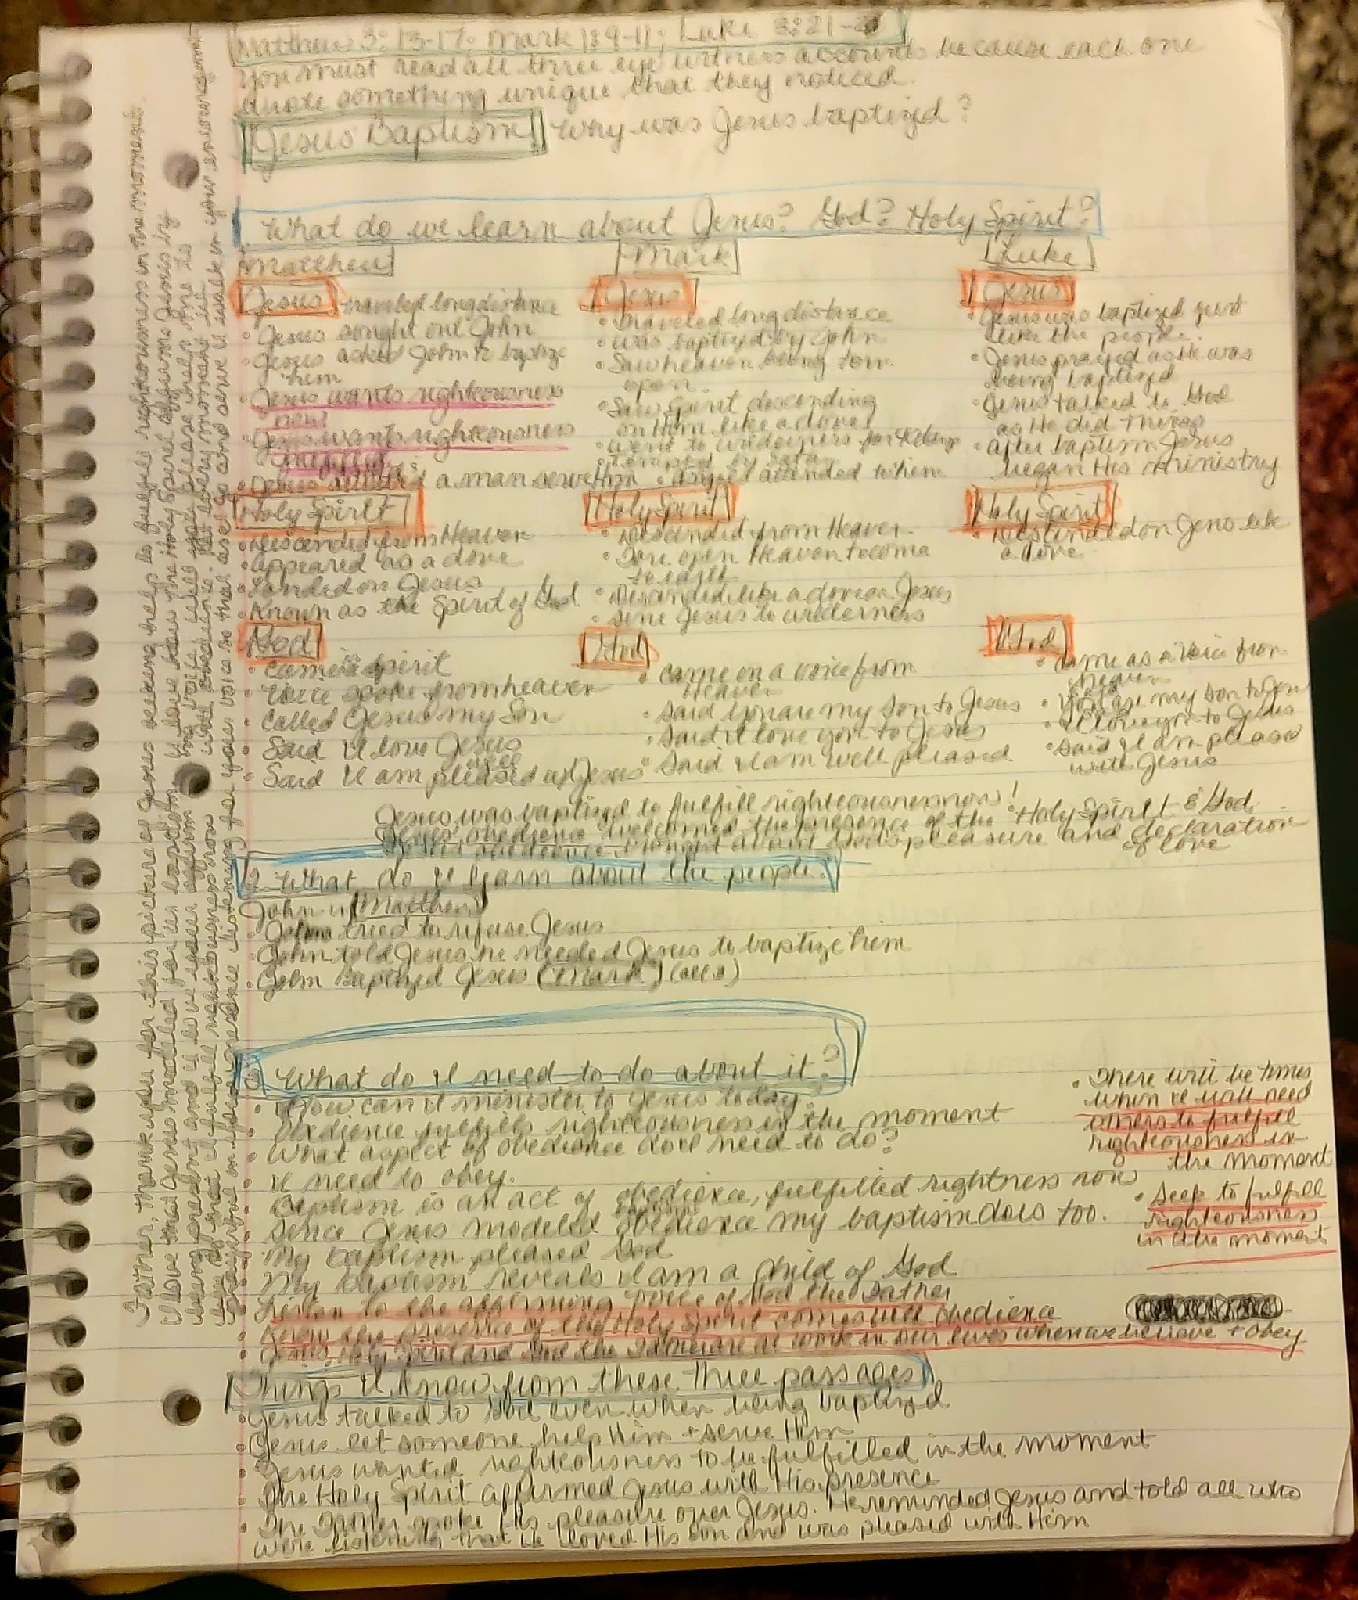 Matthew 3:13-17; Mark 1:9-11; Luke 3:21-2
You must read all three eye witness accounts because each one
quote something unique that they noticed.
Jesus Baptism Why was Jesus baptized?
What do we learn about Jesus? God? Holy Spirit?
Matthew
Jesus traveled long distance
• Jesus sought out John
• Jesus asked John to baptize
him
• Jesus wants righteousness
now
• Jesus wants righteousness
a man serve Him
Holy Spirit
• Descended from Heaven
• appeared as a dove
• Landed on Jesus
• Known as the Spirit of God
God
• Came as spirit
• Voice spoke from heaven
• Called Jesus my Son
• Said I love Jesus
• Said I am well pleased w/ Jesus
Mark
Jesus
• traveled long distance
• was baptized by John
• Saw heaven being torn
open
• Saw Spirit descending
on Him like a dove
• went to wilderness for 40 days
tempted by Satan
• angel attended to Him
Holy Spirit
• Descended from Heaven
• Tore open Heaven to come
to earth
• Descended like a dove on Jesus
• Sent Jesus to wilderness
God
• Came on a voice from
Heaven
• Said you are my Son to Jesus
• Said I love you to Jesus
• Said I am well pleased
Luke
Jesus
Jesus was baptized just
like the people.
• Jesus prayed as He was
being baptized
• Jesus talked to God
as He did things
• after baptism Jesus
began His ministry
Holy Spirit
• Descended on Jesus like
a dove
God
• Came as a voice from
heaven
• You are my Son to Jesus
• I love you to Jesus
• Said I am please
with Jesus
Jesus was baptized to fulfill righteousness now!
Jesus obedience welcomed the presence of the Holy Spirit & God
obedience brought about God's pleasure and declaration
of love
2. What do I learn about the people?
John in Matthew
• John tried to refuse Jesus
• John told Jesus he needed Jesus to baptize him
• John Baptized Jesus (Mark) (all 3)
3 What do I need to do about it?
• How can I minister to Jesus today?
• Obedience fulfills righteousness in the moment
• What aspect of obedience do I need to do?
• I need to obey.
• Baptism is an act of obedience, fulfilled rightness now
• Since Jesus modeled obedience my baptism does too.
• My baptism pleased God
• My baptism reveals I am a child of God
• Listen to the affirming voice of God the Father
• Know the presence of the Holy Spirit comes with obedience
• Jesus, Holy Spirit and God the Father are at work in our lives when we believe + obey
• There will be times
when I will need
others to fulfill
righteousness in
the moment
• Seek to fulfill
righteousness
in the moment
Things I know from these three passages
• Jesus talked to God even when being baptized
• Jesus let someone help Him + serve Him
• Jesus wanted righteousness to be fulfilled in the moment
• The Holy Spirit affirmed Jesus with His presence
• The Father spoke His pleasure over Jesus. He reminded Jesus and told all who
were listening that He loved His Son and was pleased with Him
Father, Thank you for this picture of Jesus asking help to fulfill righteousness in the moment.
I love that Jesus modeled for us baptism. I love how the Holy Spirit affirms Jesus by
being present and I love your